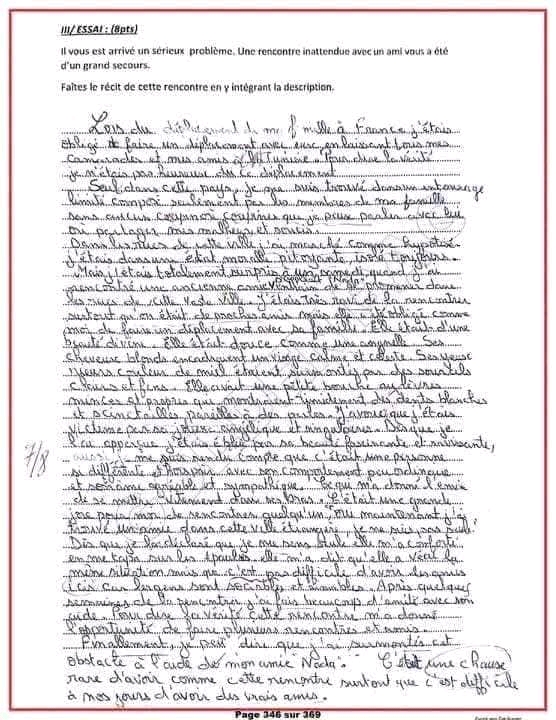 III/ ESSAI : (8pts)
Il vous est arrivé un sérieux problème. Une rencontre inattendue avec un ami vous a été
d'un grand secours.
Faites le récit de cette rencontre en y intégrant la description.
Lors du déplacement de ma famille à France j'étais
obligé de faire un déplacement avec eux en laissant tous mes
camarades et mes amis en Tunisie. Pour dire la vérité
je n'étais pas heureuse de ce déplacement
Seul dans cette pays, je me suis trouvé dans un entourage
limité composé seulement par les membres de ma famille
sans aucun que je peux parler avec lui
ou partager mes malheurs et soucis.
Dans les rues de cette ville j'ai marché comme hypotisé.
J'étais dans une état moralle pitoyante, isolé toujours.
Mais j'étais totalement surpris à un samedi quand j'ai
rencontré une ancienne amie Nada de se promener dans
les rues de cette vaste ville. J'étais très ravi de la rencontrer
surtout qu'on était de proches amis mais elle a été obligé comme
moi de faire un déplacement avec sa famille. Elle était d'une
beauté divine. Elle était douce comme une Ses
cheveux blonds encadraient un visage calme et celeste. Ses yeux
couleur de miel étaient surmontés par des sourcils
et fins. Elle avait une petite bouche aux lèvres
minces et propres que montraient timidement des dents blanches
et scincталlés pareilles à des perles. J'avoue que j'étais
victime par sa angélique et singulières. Dès que je
l'ai apperçue, j'étais éblui par sa beauté fascinante et ravissante,
aussi je me suis rendu compte que c'était une personne
si différente et avec son comportement peu ordinaire
et son âme agréable et sympathique. Ce qui m'a donné l'envie
de se mettre vitement dans ses bras. C'était une grande
joie pour moi de rencontrer quelqu'un. Oui maintenant j'ai
trouvé un amie dans cette ville étrangère, je ne suis pas seul.
Dès que je l'ai déclaré que je me sens seule elle m'a conforté
en me tapan sur les épaules elle m'a dit qu'elle a vécu la
même situation mais que c'est pas difficile d'avoir des amis
car les gens sont sociables et aimables. Après quelques
semaines de la rencontrer j'ai fais beaucoup d'amitié avec son
aide. Pour dire la vérité cette rencontre m'a donné
l'opportunité de faire plusieurs rencontres et amis.
Finallement, je peux dire que j'ai surmonté cet
obstacle à l'aide de mon amie Nada. C'était une chause
rare d'avoir comme cette rencontre surtout que c'est difficile
à nos jours d'avoir des vrais amis.
7/8
Page 346 sur 369